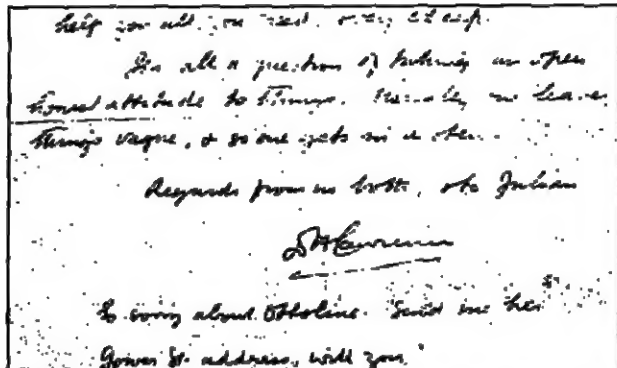 help you all you
Its all a question of taking an open
honest attitude to things. we leave
things vague, & so one gets in a
Regards from us both, to Julian
DH Lawrence
So sorry about Ottoline. Send me her
Gower St. address, will you.